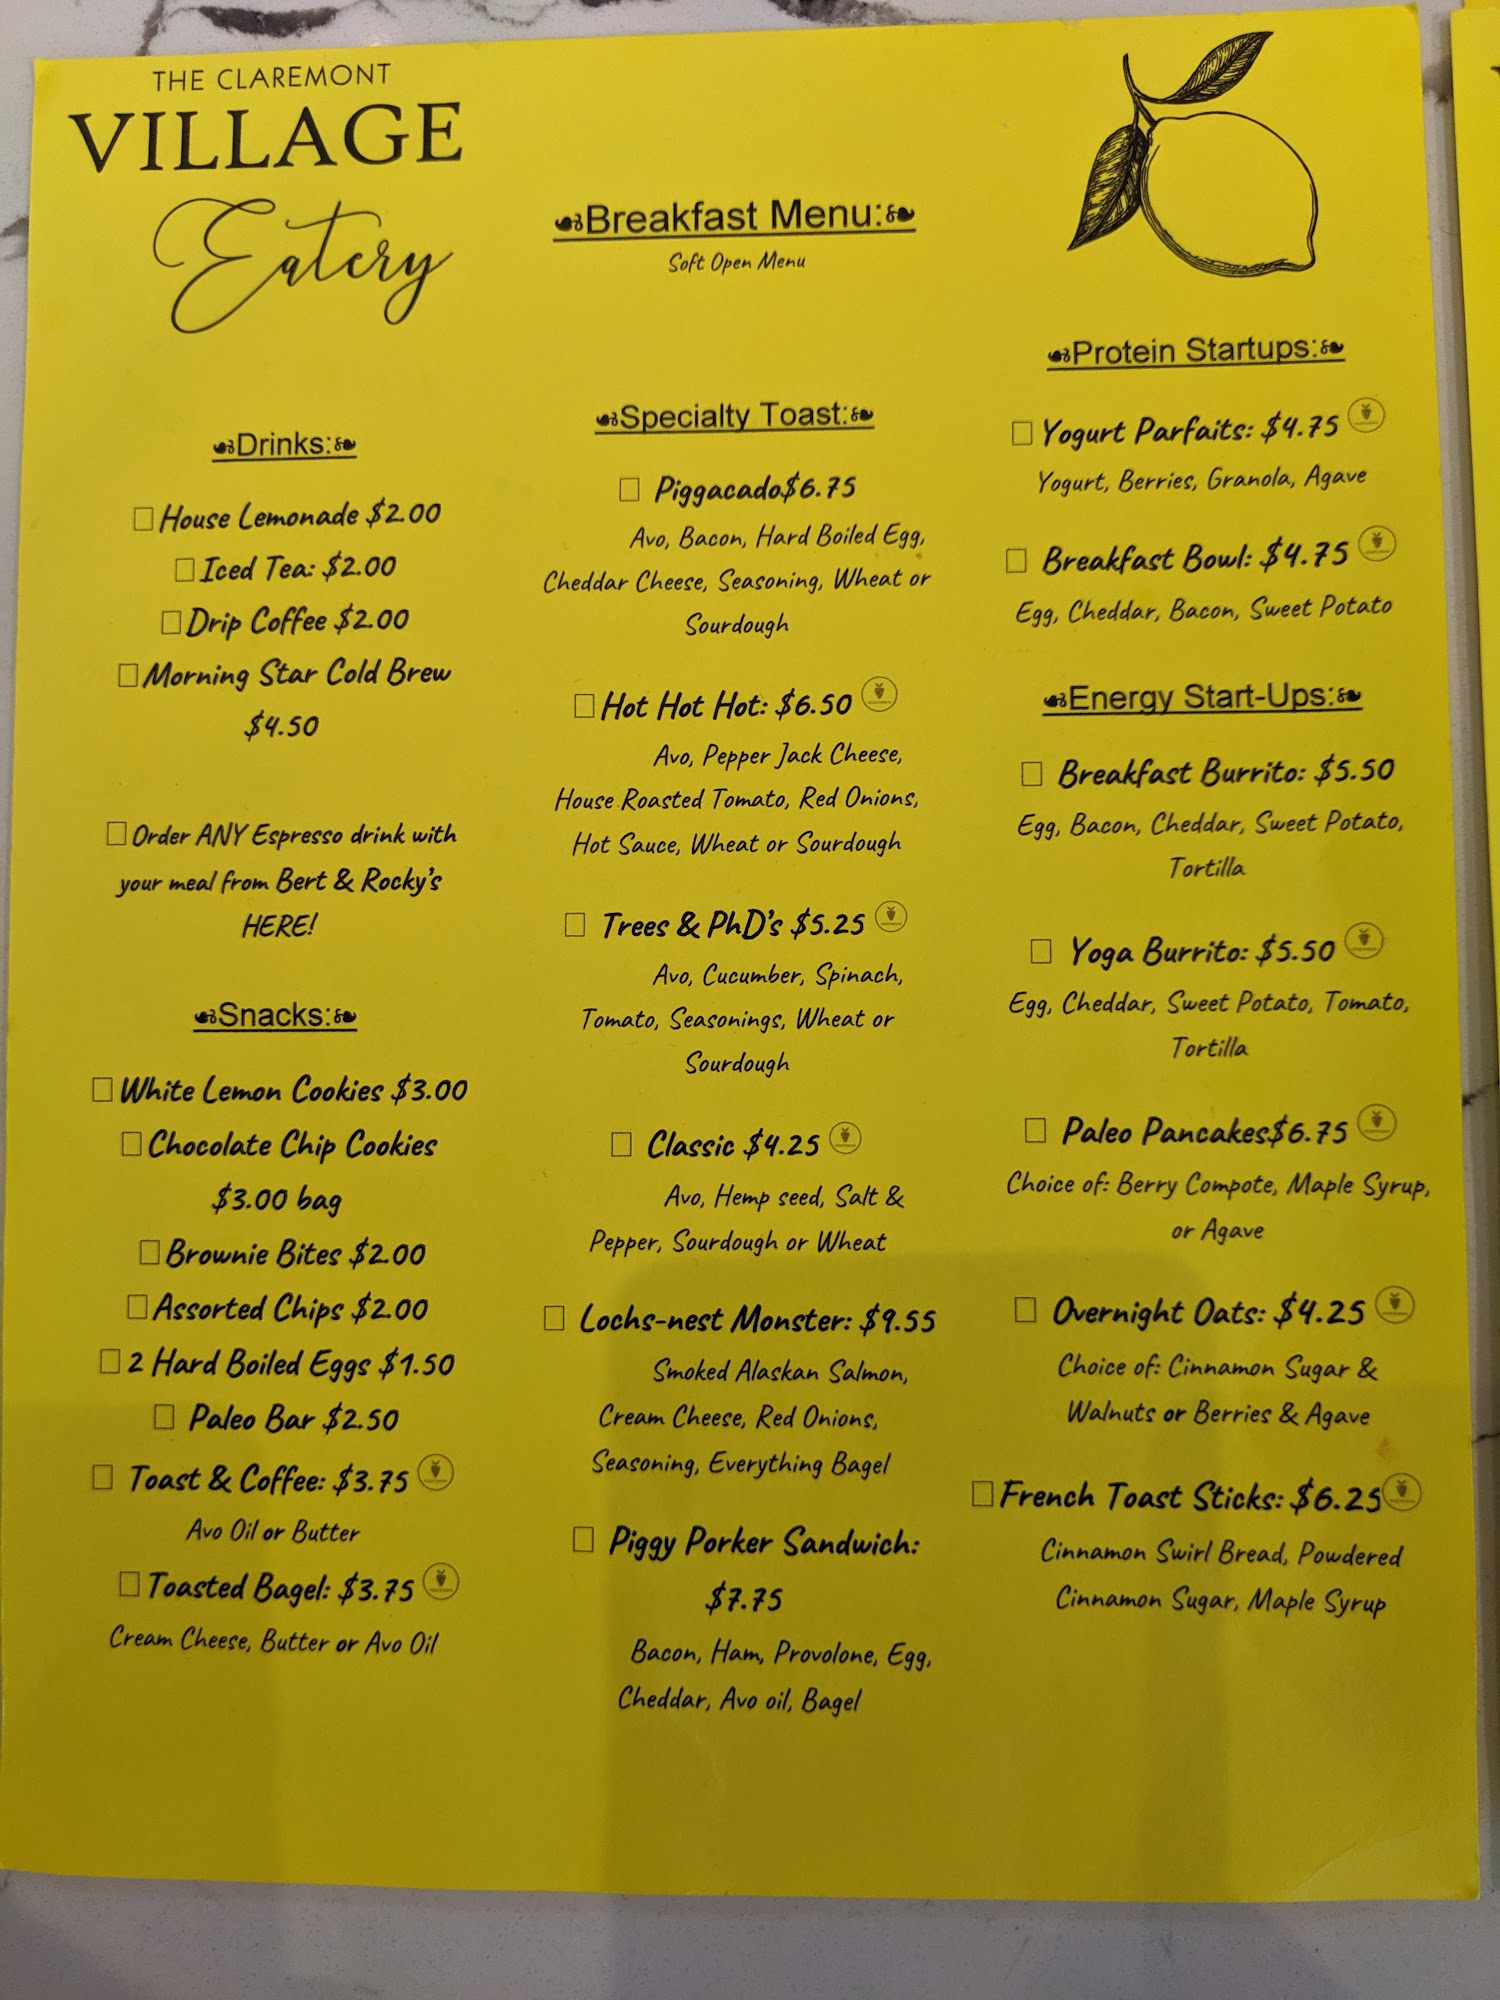 THE CLAREMONT
VILLAGE
Eatery
Breakfast Menu:
Soft Open Menu
Drinks:
House Lemonade $2.00
Iced Tea: $2.00
Drip Coffee $2.00
Morning Star Cold Brew
$4.50
Order ANY Espresso drink with
your meal from Bert & Rocky's
HERE!
Snacks:
White Lemon Cookies $3.00
Chocolate Chip Cookies
$3.00 bag
Brownie Bites $2.00
Assorted Chips $2.00
2 Hard Boiled Eggs $1.50
Paleo Bar $2.50
Toast & Coffee: $3.75
Avo Oil or Butter
Toasted Bagel: $3.75
Cream Cheese, Butter or Avo Oil
Specialty Toast:
Piggacado$6.75
Avo, Bacon, Hard Boiled Egg,
Cheddar Cheese, Seasoning, Wheat or
Sourdough
Hot Hot Hot: $6.50
Avo, Pepper Jack Cheese,
House Roasted Tomato, Red Onions,
Hot Sauce, Wheat or Sourdough
Trees & PhD's $5.25
Avo, Cucumber, Spinach,
Tomato, Seasonings, Wheat or
Sourdough
Classic $4.25
Avo, Hemp seed, Salt &
Pepper, Sourdough or Wheat
Lochs-nest Monster: $9.55
Smoked Alaskan Salmon,
Cream Cheese, Red Onions,
Seasoning, Everything Bagel
Piggy Porker Sandwich:
$7.75
Bacon, Ham, Provolone, Egg,
Cheddar, Avo oil, Bagel
Protein Startups:
Yogurt Parfaits: $4.75
Yogurt, Berries, Granola, Agave
Breakfast Bowl: $4.75
Egg, Cheddar, Bacon, Sweet Potato
Energy Start-Ups:
Breakfast Burrito: $5.50
Egg, Bacon, Cheddar, Sweet Potato,
Tortilla
Yoga Burrito: $5.50
Egg, Cheddar, Sweet Potato, Tomato,
Tortilla
Paleo Pancakes$6.75
Choice of: Berry Compote, Maple Syrup,
or Agave
Overnight Oats: $4.25
Choice of: Cinnamon Sugar &
Walnuts or Berries & Agave
French Toast Sticks: $6.25
Cinnamon Swirl Bread, Powdered
Cinnamon Sugar, Maple Syrup